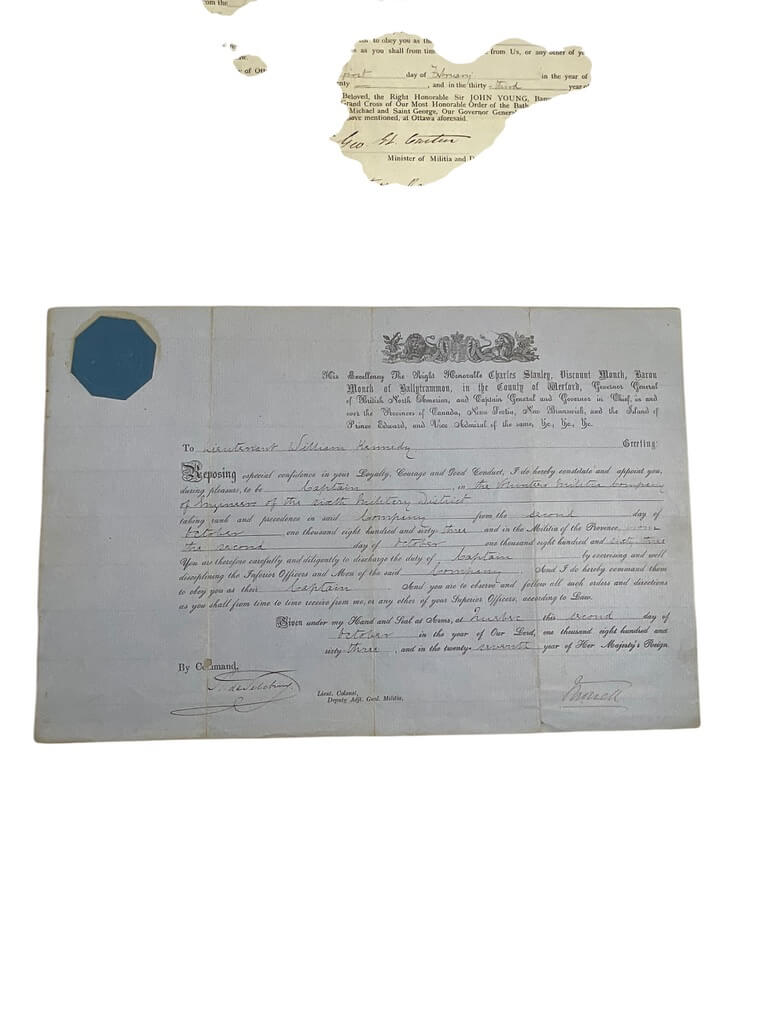 om the
to obey you as th
as you shall from time
from Us, or any other of y
of Ott
first day of February in the year of
nty , and in the thirty - third year of
Beloved, the Right Honorable Sir JOHN YOUNG, Bar
Grand Cross of Our Most Honorable Order of the Bath
Michael and Saint George, Our Governor General
ove mentioned, at Ottawa aforesaid.
Geo. Et. Cartier
Minister of Militia and D
His Excellency The Right Honorable Charles Stanley, Viscount Monck, Baron
Monck of Ballytrammon, in the County of Wexford, Governor General
of British North America, and Captain General and Governor in Chief, in and
over the Provinces of Canada, Nova Scotia, New Brunswick, and the Island of
Prince Edward, and Vice Admiral of the same, &c., &c., &c.
To Lieutenant William Kennedy Greeting:
Reposing especial confidence in your Loyalty, Courage and Good Conduct, I do hereby constitute and appoint you,
during pleasure, to be Captain in the Volunteer Militia Company
of Engineers of the sixth Military District
taking rank and precedence in said Company from the second day of
October one thousand eight hundred and sixty-three and in the Militia of the Province, from
the second day of October one thousand eight hundred and sixty three
You are therefore carefully and diligently to discharge the duty of Captain by exercising and well
disciplining the Inferior Officers and Men of the said Company. And I do hereby command them
to obey you as their Captain And you are to observe and follow all such orders and directions
as you shall from time to time receive from me, or any other of your Superior Officers, according to Law.
Given under my Hand and Seal at Arms, at Quebec this second day of
October in the year of Our Lord, one thousand eight hundred and
sixty-three, and in the twenty-seventh year of Her Majesty's Reign.
By Command,
Lieut. Colonel,
Deputy Adjt. Genl. Militia,
Monck